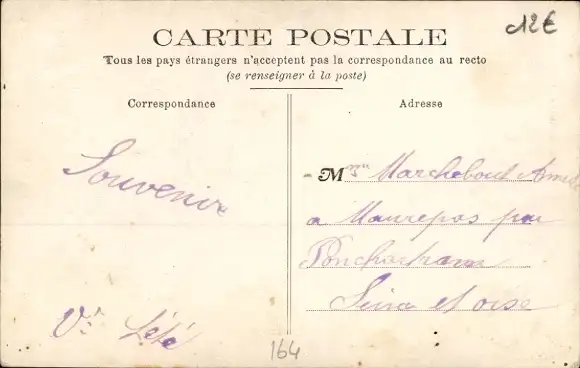 12€
CARTE POSTALE
Tous les pays étrangers n'acceptent pas la correspondance au recto
(se renseigner à la poste)
Correspondance
Adresse
Souvenir
M Marchebout
a Maurepas par
Ponchartrain
Seine et oise
164